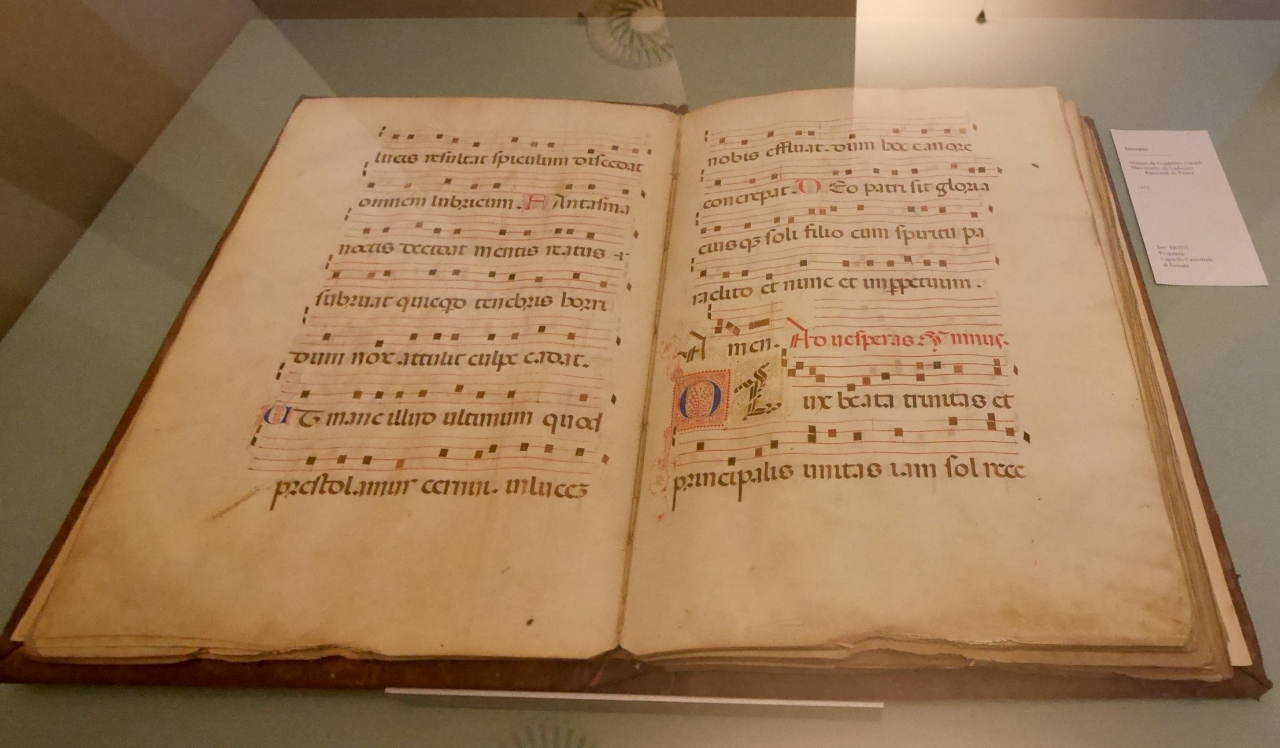 lucis resultat spiculum discedat
omnem lubricum. Fantasma
noctis decidat mentis reatus
subruat quicqd tenebris horri
dum nox attulit culpe cadat.
UT mane illud ultimum quod
prestolamur cernui. in lucez
nobis effluat. dum hoc canore
concrepat. DEo patri sit gloria
eiusqz soli filio cum spiritu pa
raclito et nunc et in ppetuum.
Amen. Ad uesperas Hymnus.
O Lux beata trinitas et
principalis unitas iam sol rece